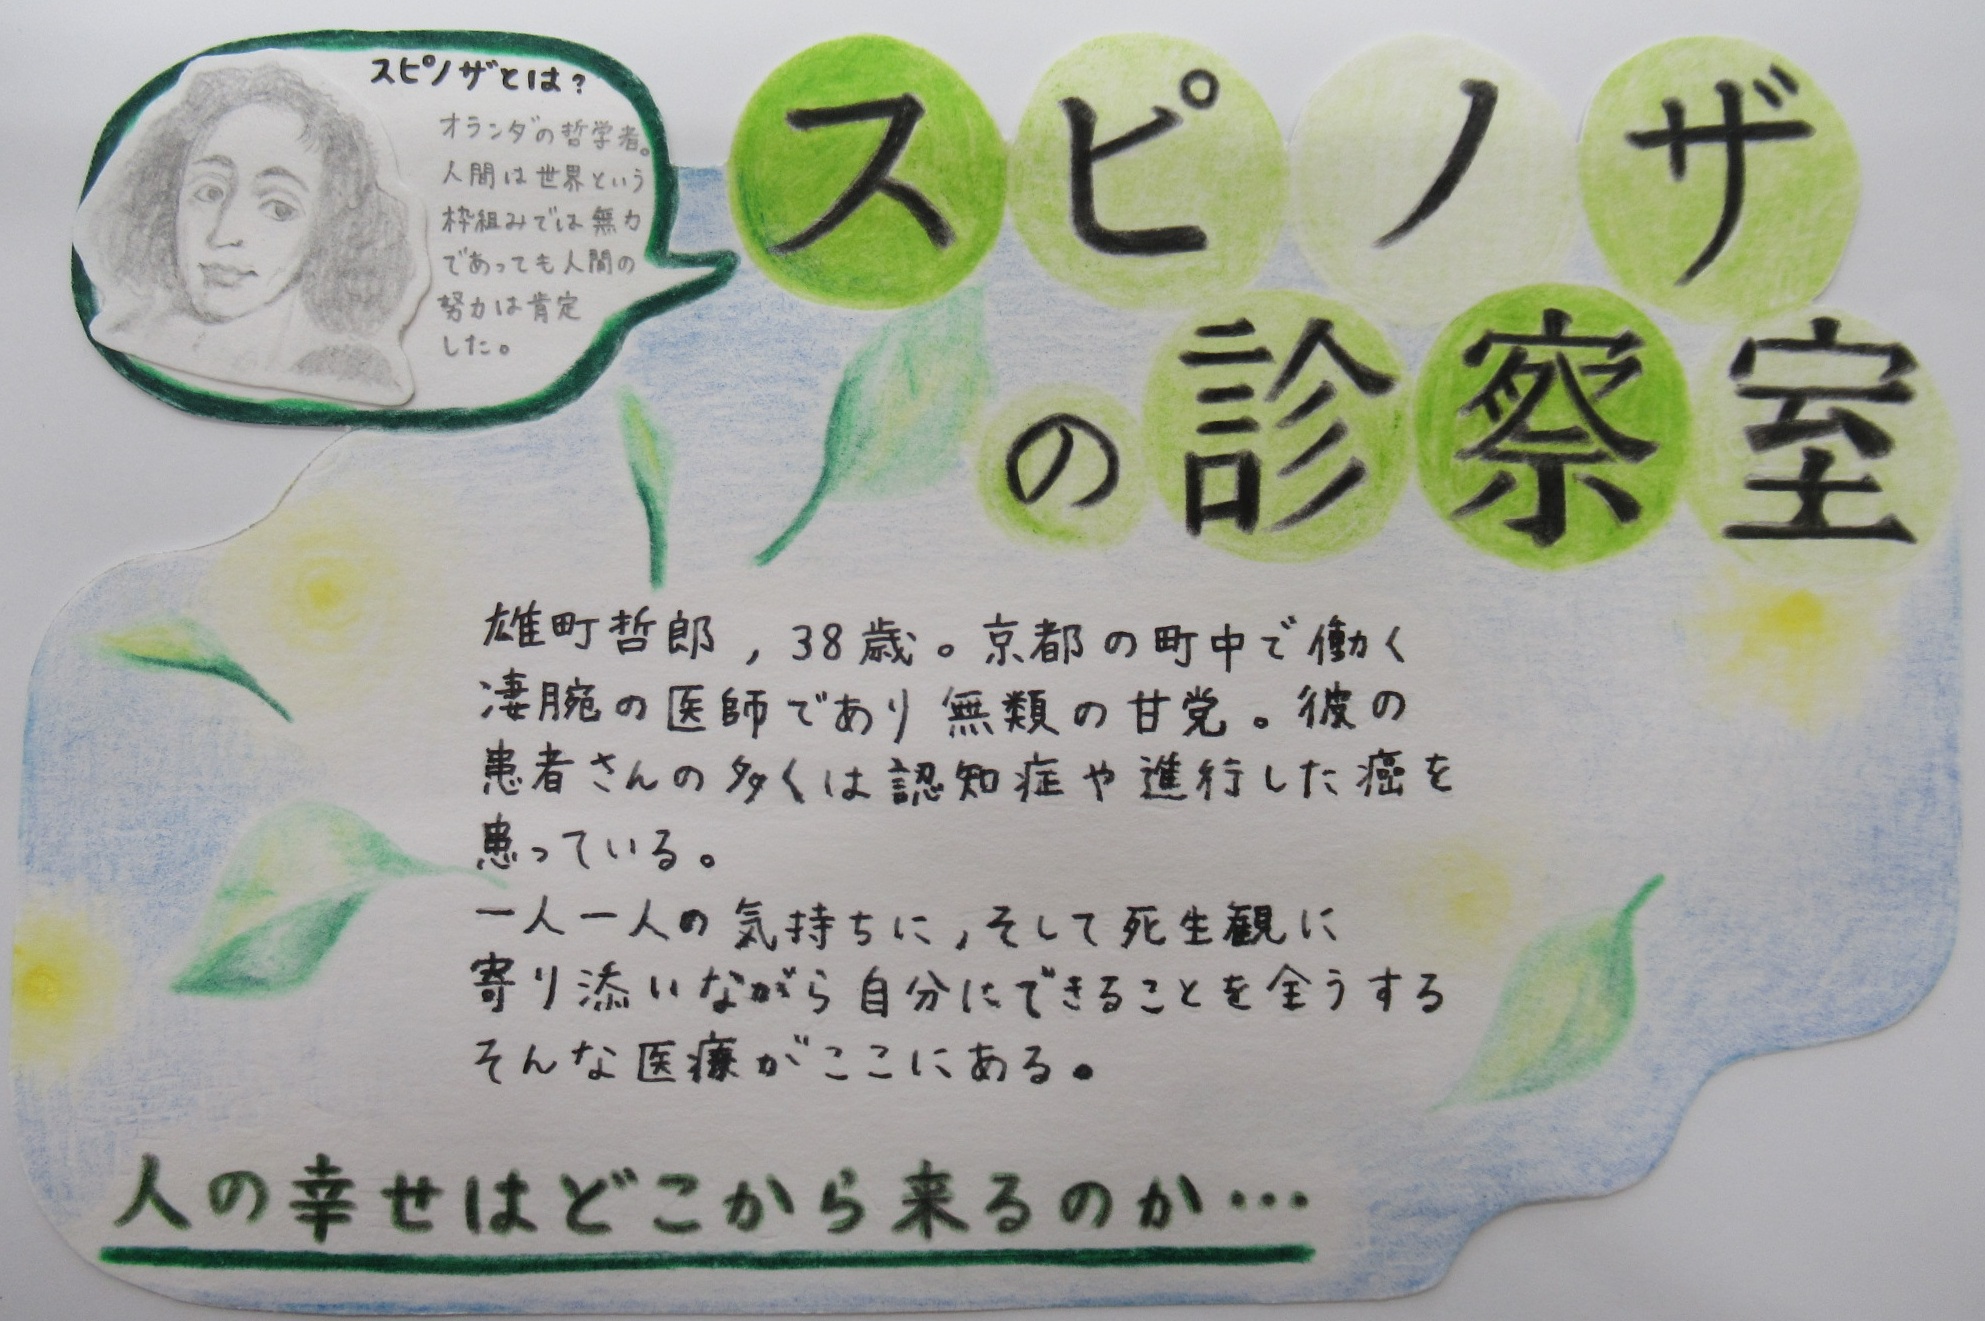 スピノザとは?
オランダの哲学者。
人間は世界という
枠組みでは無力
であっても人間の
努力は肯定
した。
スピノザ
の診察室
雄町哲郎,38歳。京都の町中で働く
凄腕の医師であり無類の甘党。彼の
患者さんの多くは認知症や進行した癌を
患っている。
一人一人の気持ちに,そして死生観に
寄り添いながら自分にできることを全うする
そんな医療がここにある。
人の幸せはどこから来るのか…